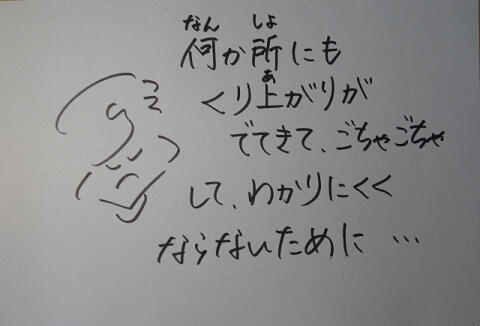 なん しょ
何か所にも
あ
くり上がりが
でてきて、ごちゃごちゃ
して、わかりにくく
ならないために …